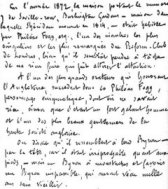 En l'année 1872, la maison portant le numéro
de Saville-row, Burlington Gardens — maison dans
laquelle Sheridan mourut en 1814, — était habitée
par Phileas Fogg, esq., l'un des membres les plus
singuliers et les plus remarqués du Reform-Club
de Londres, bien qu'il semblât prendre à tâche
de ne rien faire qui pût attirer l'attention.
A l'un des plus grands orateurs qui honorent
l'Angleterre, succédait donc ce Phileas Fogg,
personnage énigmatique, dont on ne savait
rien, sinon que c'était un fort galant homme
et l'un des plus beaux gentlemen de la
haute société anglaise.
On disait qu'il ressemblait à Byron —
par la tête, car il était irréprochable quant aux
pieds, — mais un Byron à moustaches et favoris,
un Byron impassible, qui aurait vécu mille
ans sans vieillir.